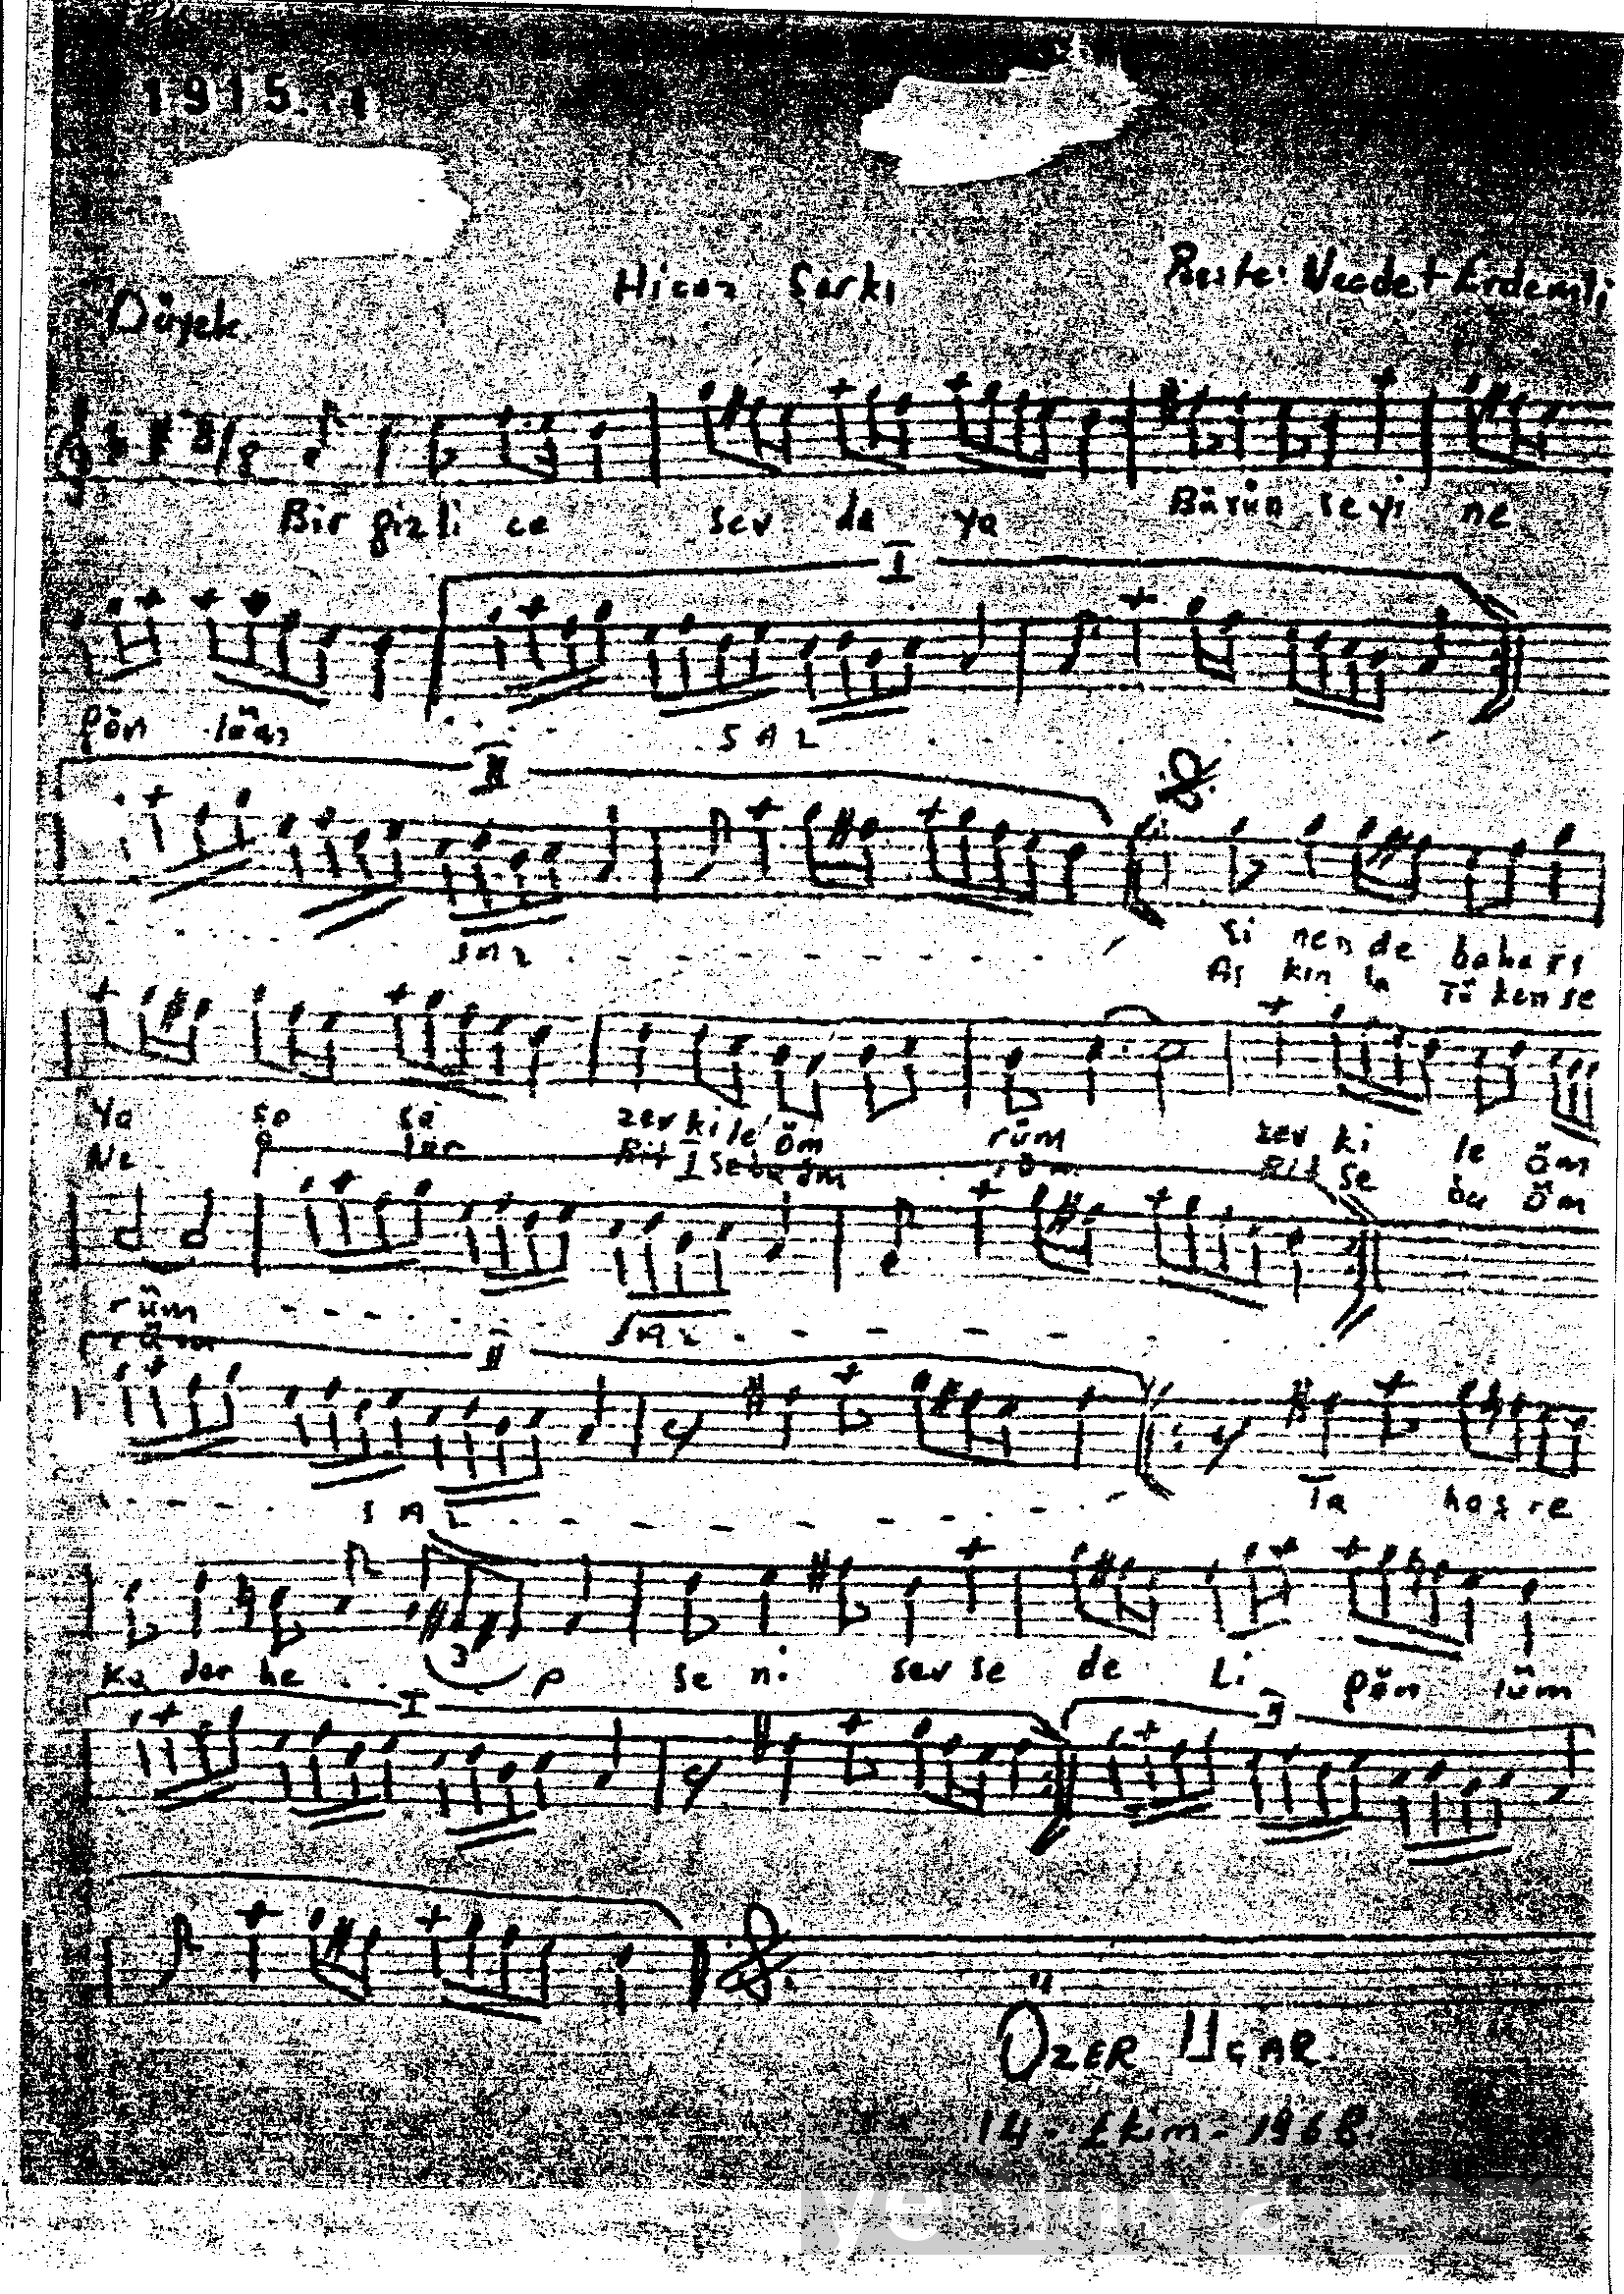 1915.
Düyek Hicaz Şarkı Beste: Vecdet Erdemli
Bir gizli ce sev da ya Bürün se yi ne
gön lüm
I
SAZ
II
SAZ
Si nen de baha rı
Aş kın la Tü ken se
Ya şa sa zev ki le öm rüm zev ki le öm
Ne Bit se bu öm rüm Bit se bu öm
I
rüm
rüm
SAZ
II
SAZ
Ta haş re
ka dar he p se ni sev se de li gön lüm
3
I
ÖZER UÇAR
14. Ekim - 1968